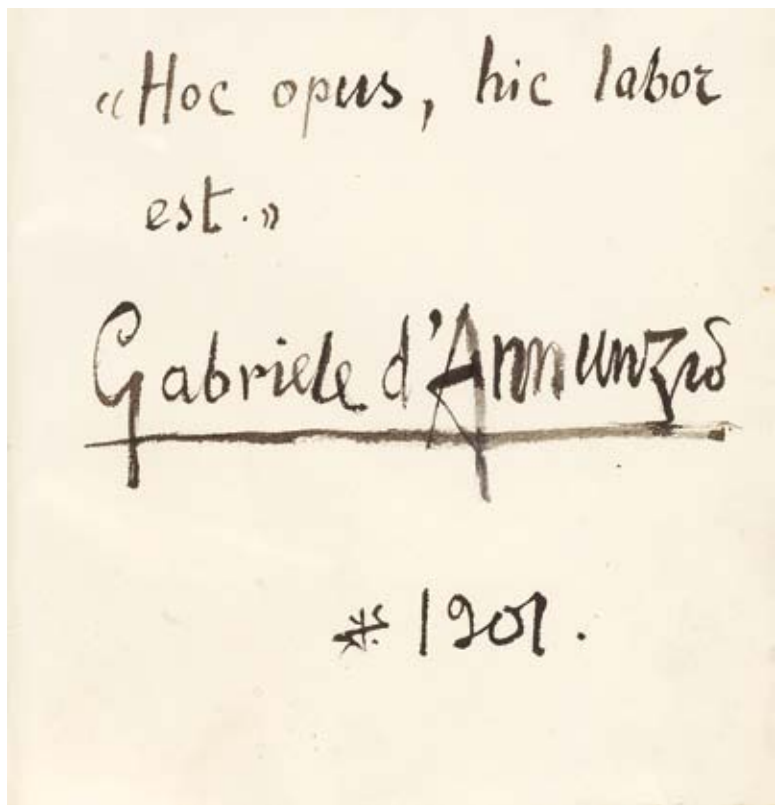 «Hoc opus, hic labor
est.»
Gabriele d'Annunzio
* 1901.